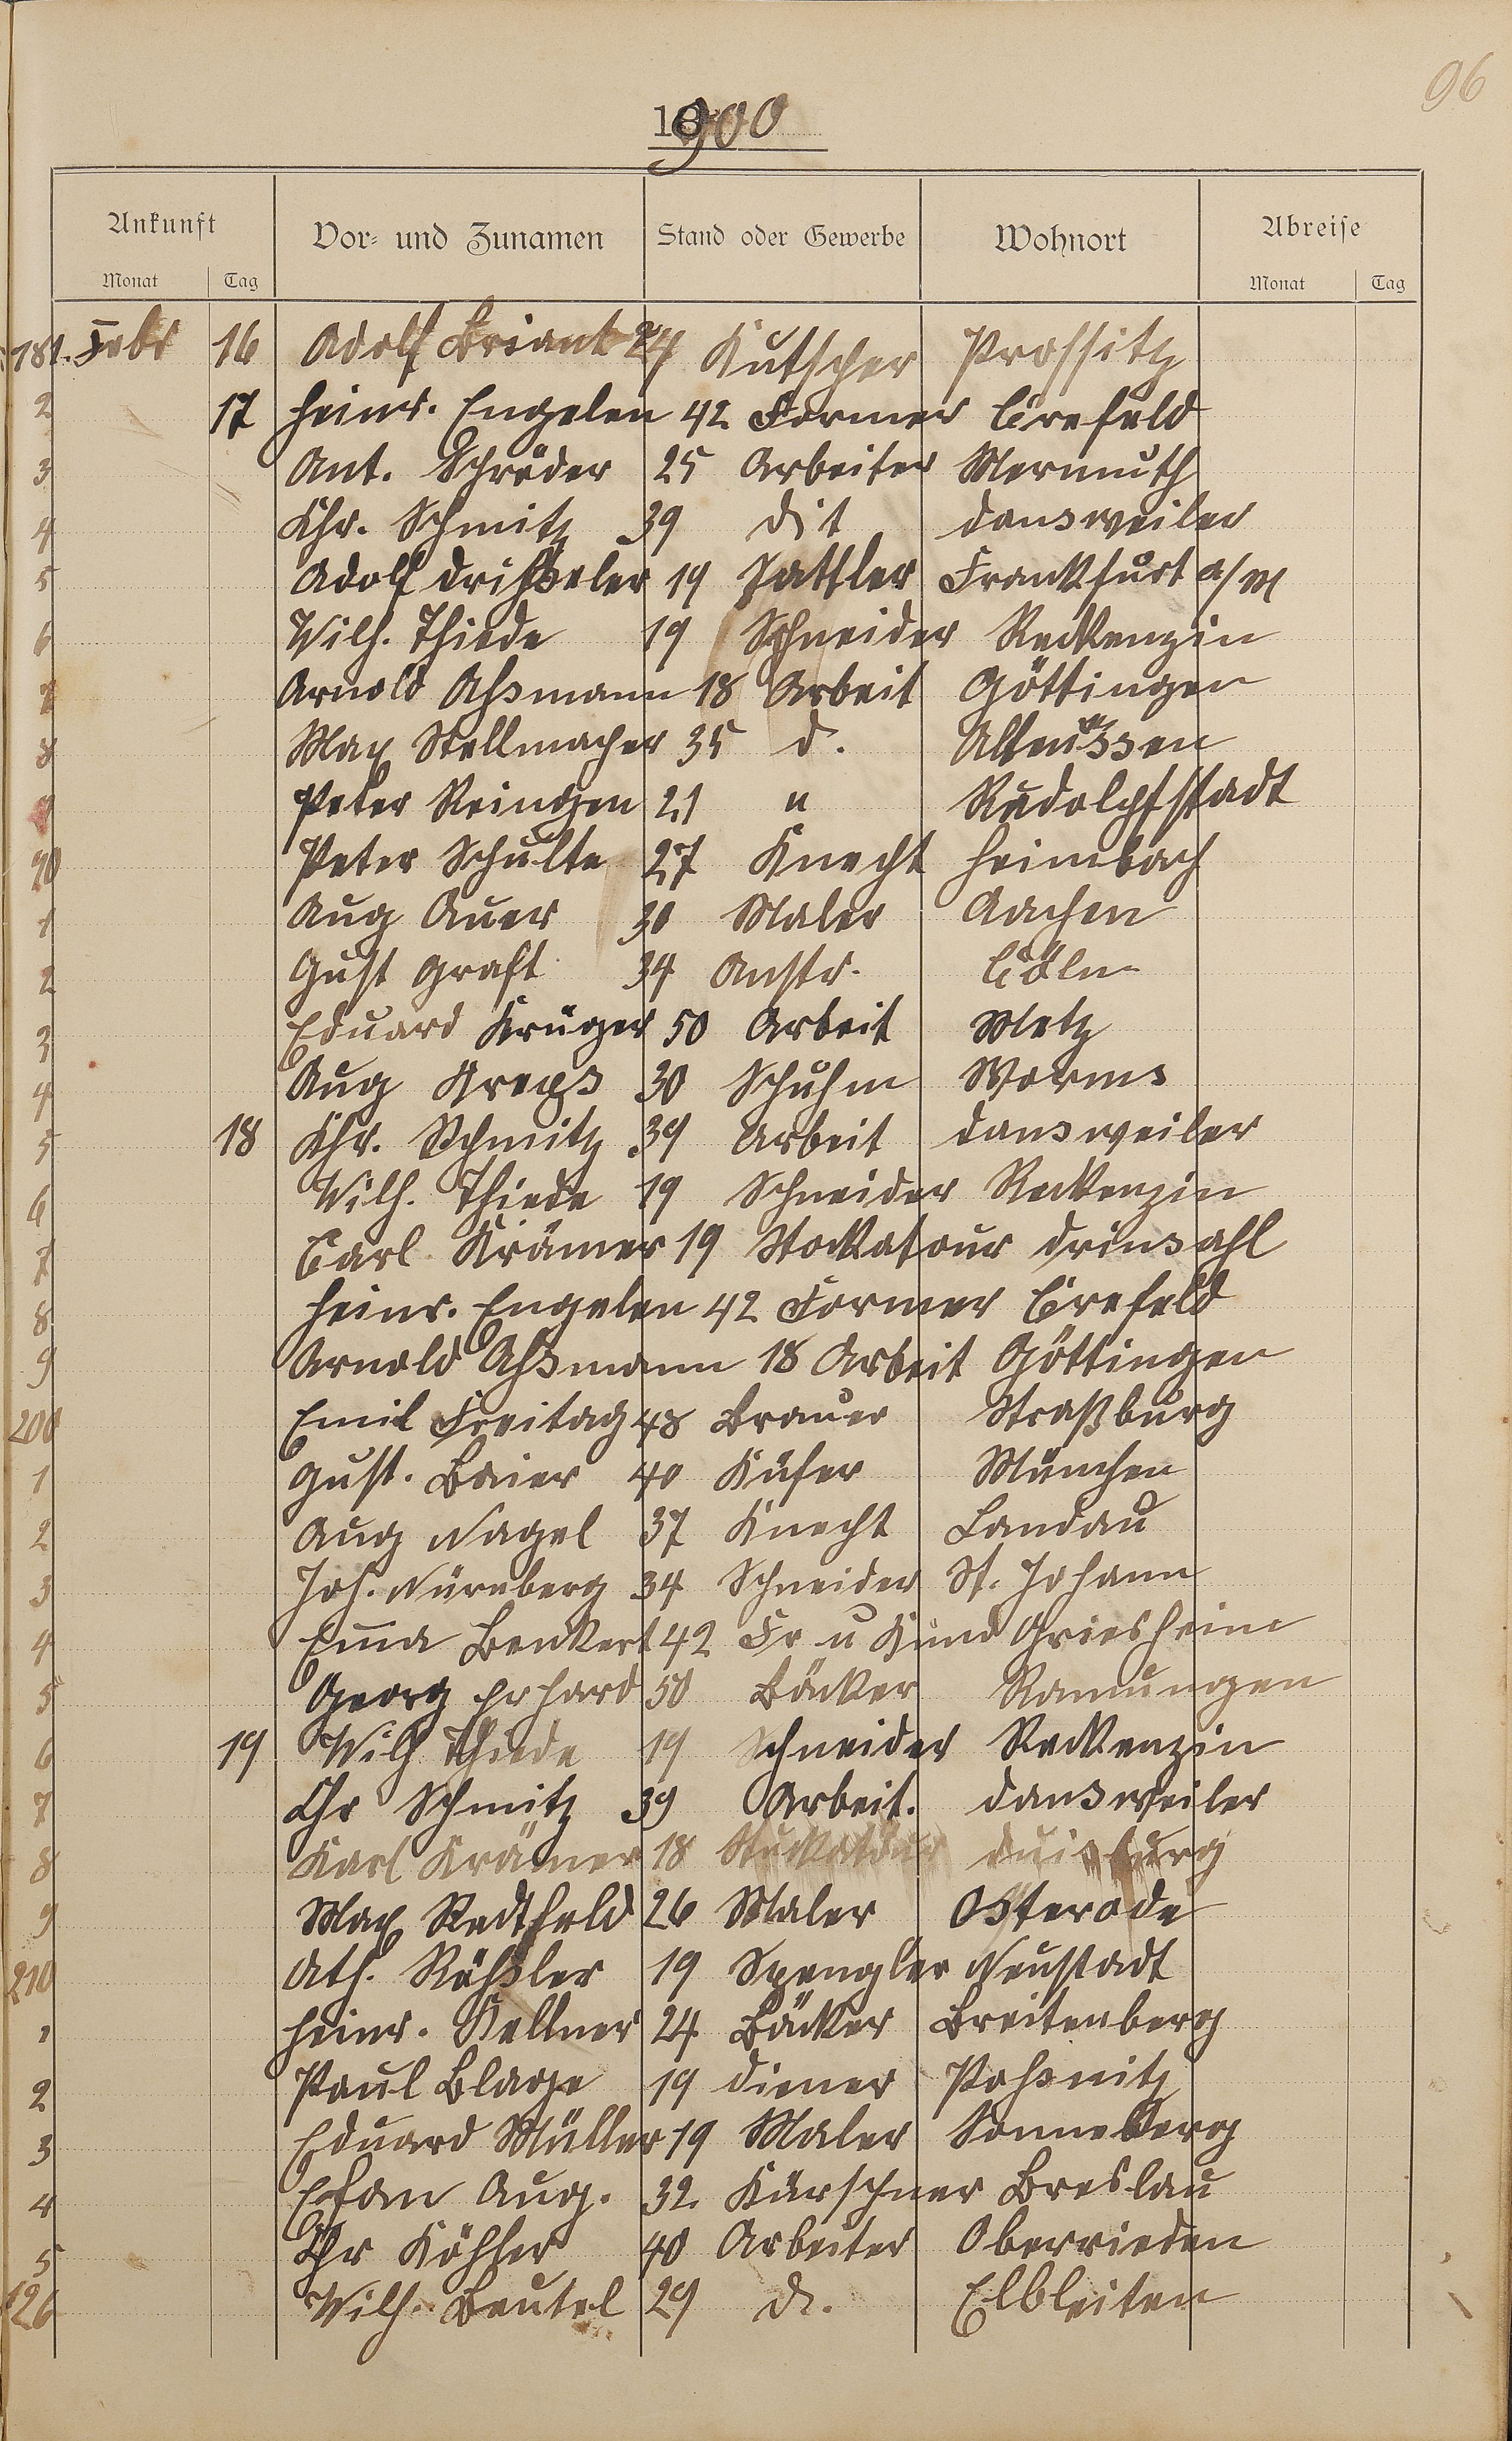 96
1900
Ankunft Vor- und Zunamen Stand oder Gewerbe Wohnort Abreise
Monat Tag Monat Tag
181. Febr 16 Adolf Briant 24 Kutscher Prossitz
2 17 Heinr. Engelen 42 Former Crefeld
3 Ant. Schröder 25 Arbeiter Mermuth
4 Chr. Schmitz 39 dit Dansweiler
5 Adolf Drißeler 19 Sattler Frankfurt a/M
6 Wilh. Thiede 19 Schneider Reckenzin
7 Arnold Aßmann 18 Arbeit Göttingen
8 Max Stellmacher 35 d. Altenessen
9 Peter Reingen 21 " Rudolpfstadt
90 Peter Schulte 27 Knecht Heimbach
1 Aug Auer 30 Maler Aachen
2 Gust Graft 34 Anstr. Cöln
3 Eduard Krüger 50 Arbeit Metz
4 Aug Kreps 30 Schuhm Worms
5 18 Chr. Schmitz 39 Arbeit Dansweiler
6 Wilh. Thiede 19 Schneider Reckenzin
7 Carl Krämer 19 Stockatour Drinsahl
8 Heinr. Engelen 42 Former Crefeld
9 Arnold Aßmann 18 Arbeit Göttingen
200 Emil Freitag 48 Brauer Straßburg
1 Gust. Baier 40 Küfer München
2 Aug Nagel 37 Knecht Landau
3 Joh. Nürnberg 34 Schneider St. Johann
4 Em̄a Benkert 42 Fr u Kind Griesheim
5 Georg Erhard 50 Bäcker Ramungen
6 19 Wilh Thiede 19 Schneider Reckenzin
7 Chr Schmitz 39 Arbeit. Dansweiler
8 Karl Krämer 18 Stuckatdur Duisburg
9 Max Radtfeld 26 Maler Osterode
210 Ath. Rößler 19 Spengler Neustadt
1 Heinr. Kellner 24 Bäcker Breitenberg
2 Paul Blage 19 Diener Poßnitz
3 Eduard Müller 19 Maler Sonneberg
4 Aug. 32 Kürschner Breslau
5 Chr Köhler 40 Arbeiter Oberrieden
126 Wilh. Beutel 29 d. Elbleiten